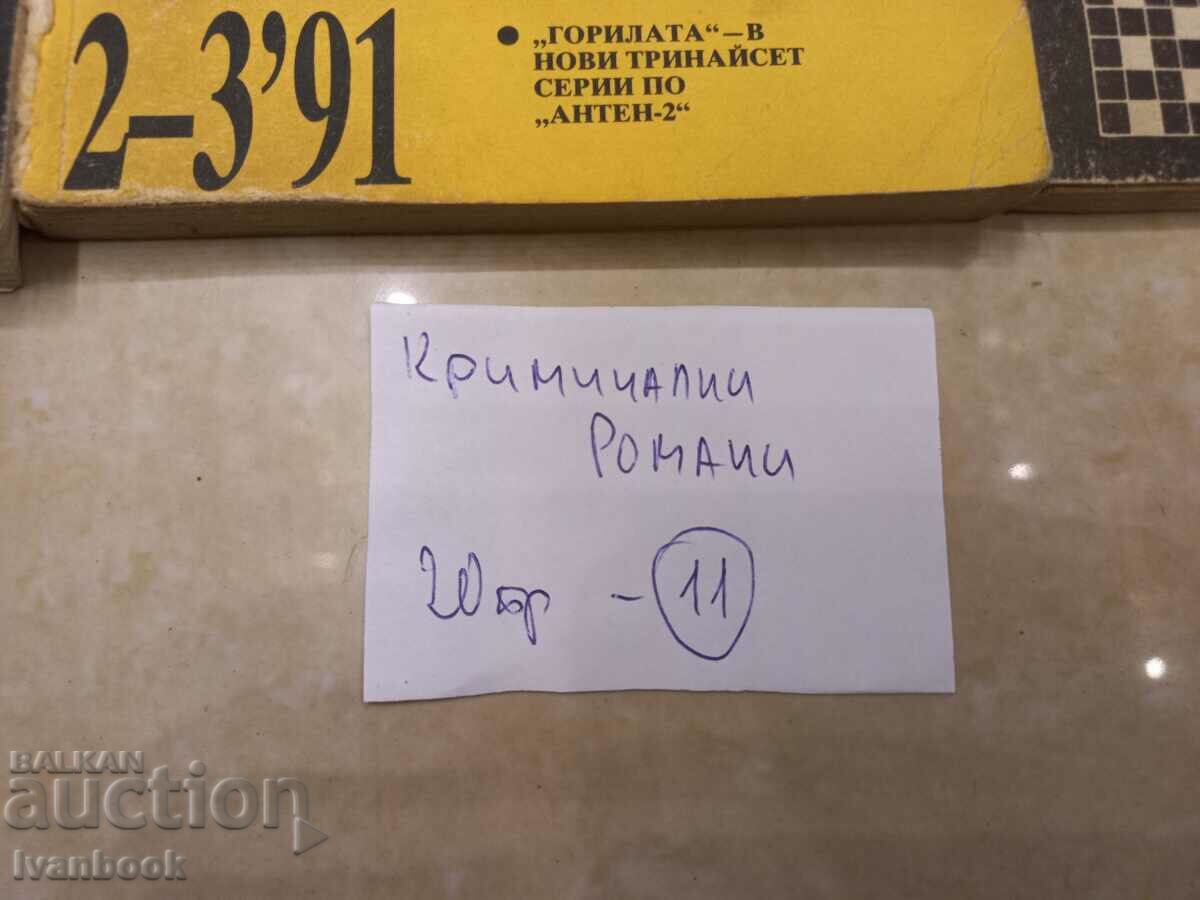 2–3’91
● „ГОРИЛАТА“ – В
НОВИ ТРИНАЙСЕТ
СЕРИИ ПО
„АНТЕН-2“
Криминални
Романи
20 бр – 11
BALKAN
auction
Ivanbook